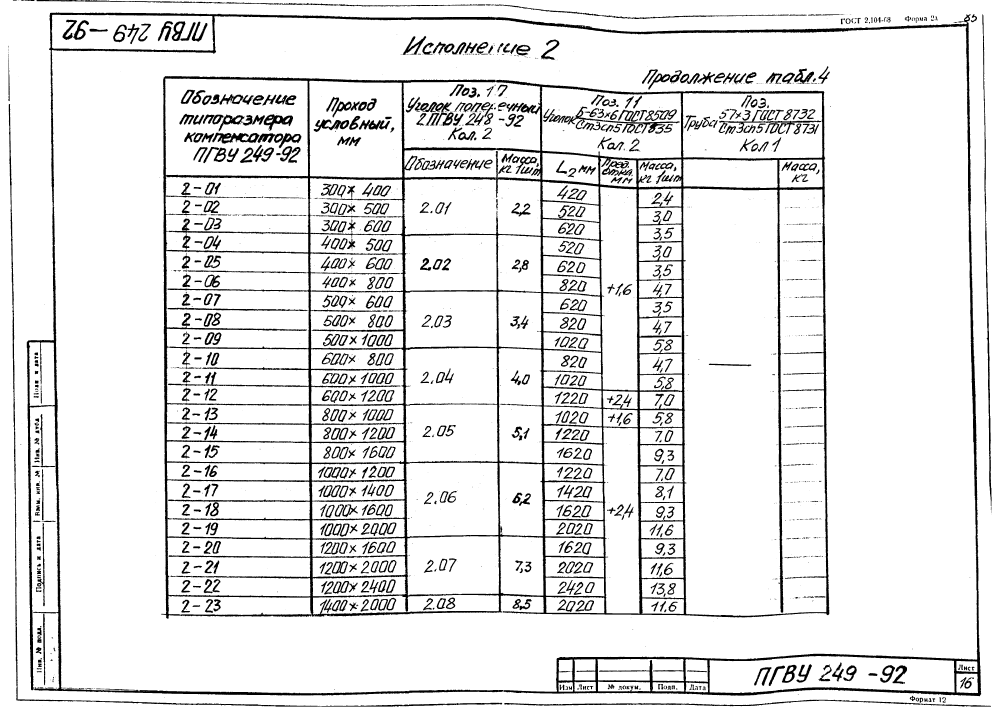 ГОСТ 2.104-68 Форма 2а 85
ПГВУ 249-92
Исполнение 2
Продолжение табл.4
Обозначение типоразмера компенсатора ПГВУ 249-92
Проход условный, мм
Поз. 17 Уголок поперечный 2ПГВУ 248-92 Кол. 2
Поз. 11 Уголок Б-63×6 ГОСТ 8509 Ст3сп5 ГОСТ 535 Кол. 2
Поз. Труба 57×3 ГОСТ 8732 Ст3сп5 ГОСТ 8731 Кол 1
Обозначение Масса, кг 1шт L2 мм Пред. откл. мм Масса, кг 1шт Масса, кг
2-01 300×400 420 2,4
2-02 300×500 2.01 2,2 520 3,0
2-03 300×600 620 3,5
2-04 400×500 520 3,0
2-05 400×600 2.02 2,8 620 3,5
2-06 400×800 820 +1,6 4,7
2-07 500×600 620 3,5
2-08 500×800 2.03 3,4 820 4,7
2-09 500×1000 1020 5,8
2-10 600×800 820 4,7
2-11 600×1000 2.04 4,0 1020 5,8
2-12 600×1200 1220 +2,4 7,0
2-13 800×1000 1020 +1,6 5,8
2-14 800×1200 2.05 5,1 1220 7,0
2-15 800×1600 1620 9,3
2-16 1000×1200 1220 7,0
2-17 1000×1400 2.06 6,2 1420 8,1
2-18 1000×1600 1620 +2,4 9,3
2-19 1000×2000 2020 11,6
2-20 1200×1600 1620 9,3
2-21 1200×2000 2.07 7,3 2020 11,6
2-22 1200×2400 2420 13,8
2-23 1400×2000 2.08 8,5 2020 11,6
Подп. и дата
Инв. № дубл.
Взам. инв. №
Подпись и дата
Инв. № подл.
Изм Лист № докум. Подп. Дата
ПГВУ 249-92
Лист
16
Формат 12